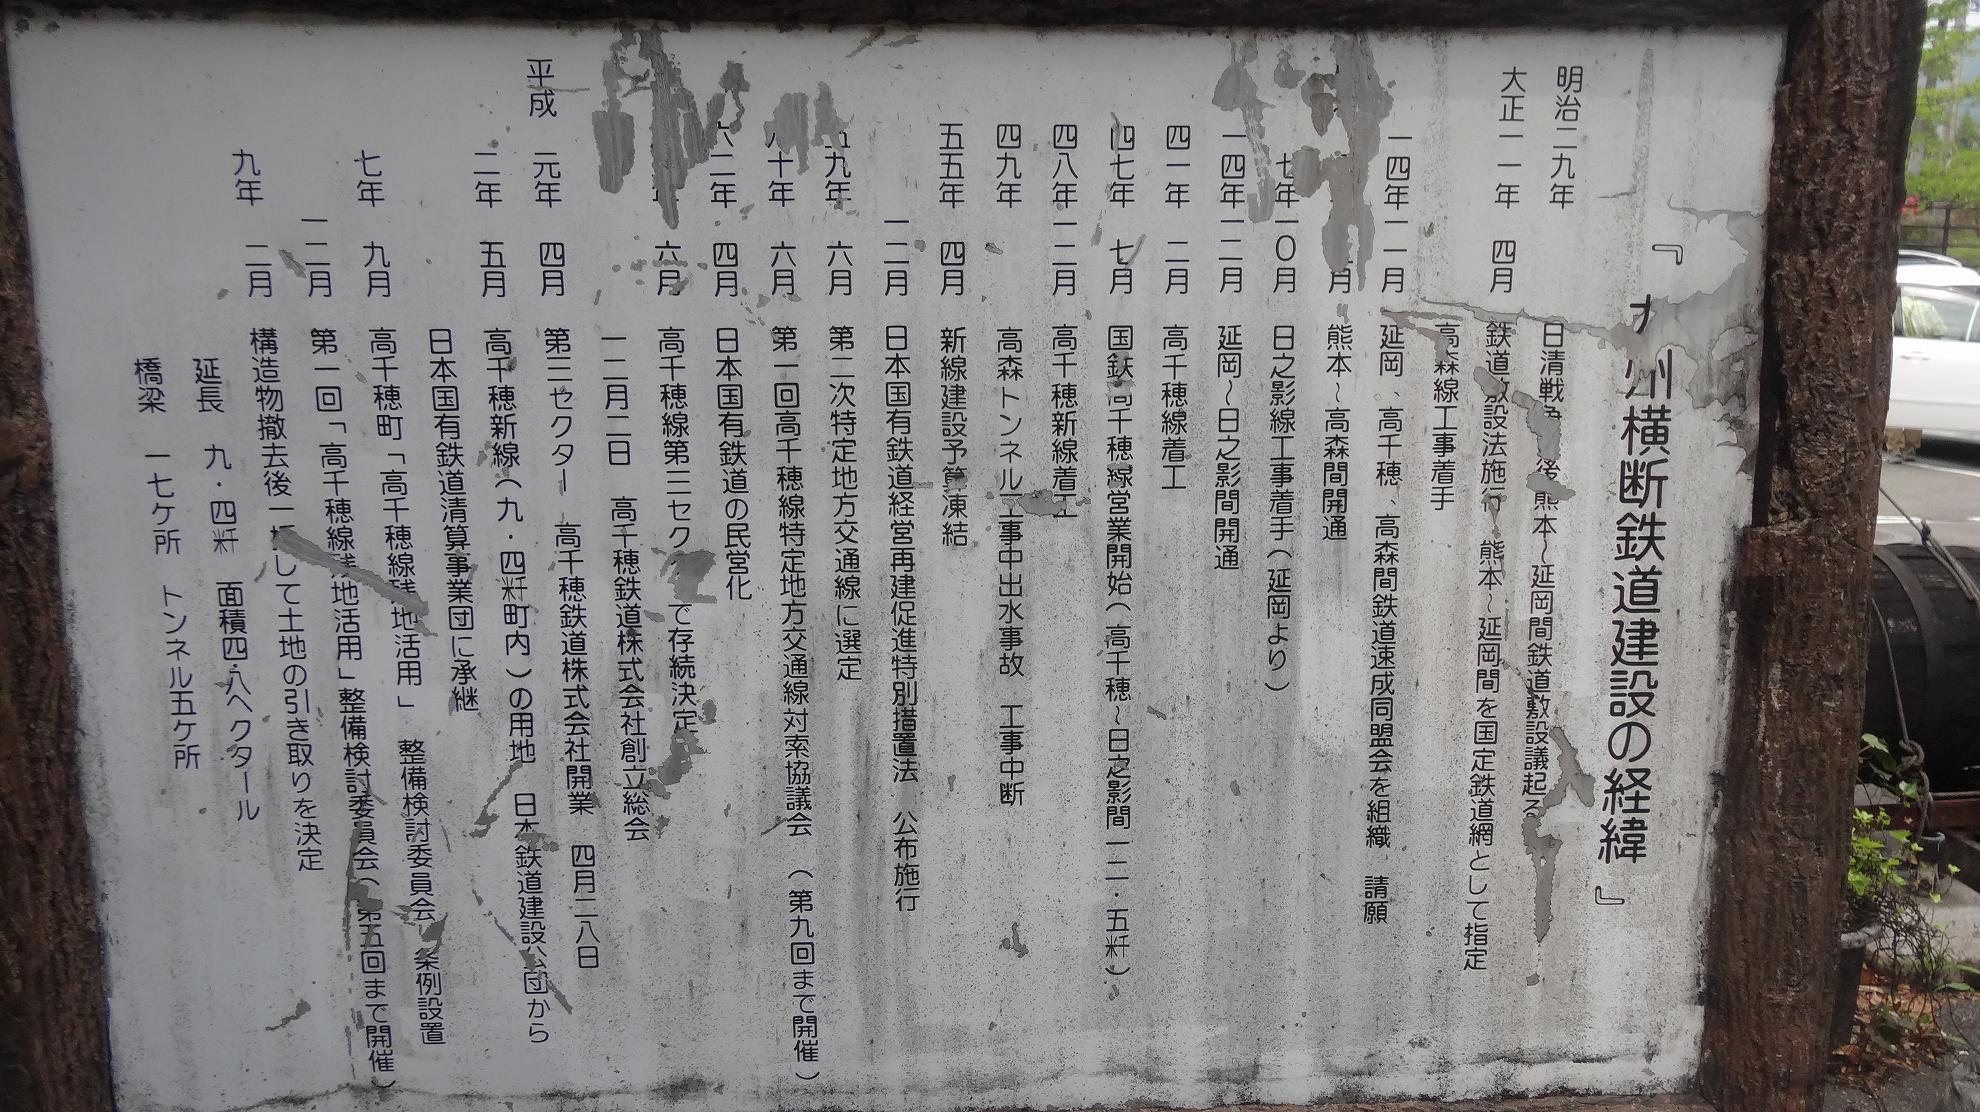 『九州横断鉄道建設の経緯』
明治二九年 日清戦争後熊本～延岡間鉄道敷設議起る
大正一一年 四月 鉄道敷設法施行 熊本～延岡間を国定鉄道網として指定
高森線工事着手
一四年一一月 延岡、高千穂、高森間鉄道速成同盟会を組織、請願
月 熊本～高森間開通
七年一〇月 日之影線工事着手(延岡より)
一四年一二月 延岡～日之影間開通
四一年 二月 高千穂線着工
四七年 七月 国鉄高千穂線営業開始(高千穂～日之影間一二・五粁)
四八年一二月 高千穂新線着工
四九年 高森トンネル工事中出水事故 工事中断
五五年 四月 新線建設予算凍結
一二月 日本国有鉄道経営再建促進特別措置法 公布施行
五九年 六月 第二次特定地方交通線に選定
六十年 六月 第一回高千穂線特定地方交通線対索協議会 (第九回まで開催)
六二年 四月 日本国有鉄道の民営化
年 六月 高千穂線第三セクターで存続決定
一二月二日 高千穂鉄道株式会社創立総会
平成 元年 四月 第三セクター 高千穂鉄道株式会社開業 四月二八日
二年 五月 高千穂新線(九・四粁町内)の用地 日本鉄道建設公団から
日本国有鉄道清算事業団に承継
七年 九月 高千穂町「高千穂線残地活用」 整備検討委員会 条例設置
一二月 第一回「高千穂線残地活用」整備検討委員会(第五回まで開催)
九年 二月 構造物撤去後一括して土地の引き取りを決定
延長 九・四粁 面積四・八ヘクタール
橋梁 一七ケ所 トンネル五ケ所